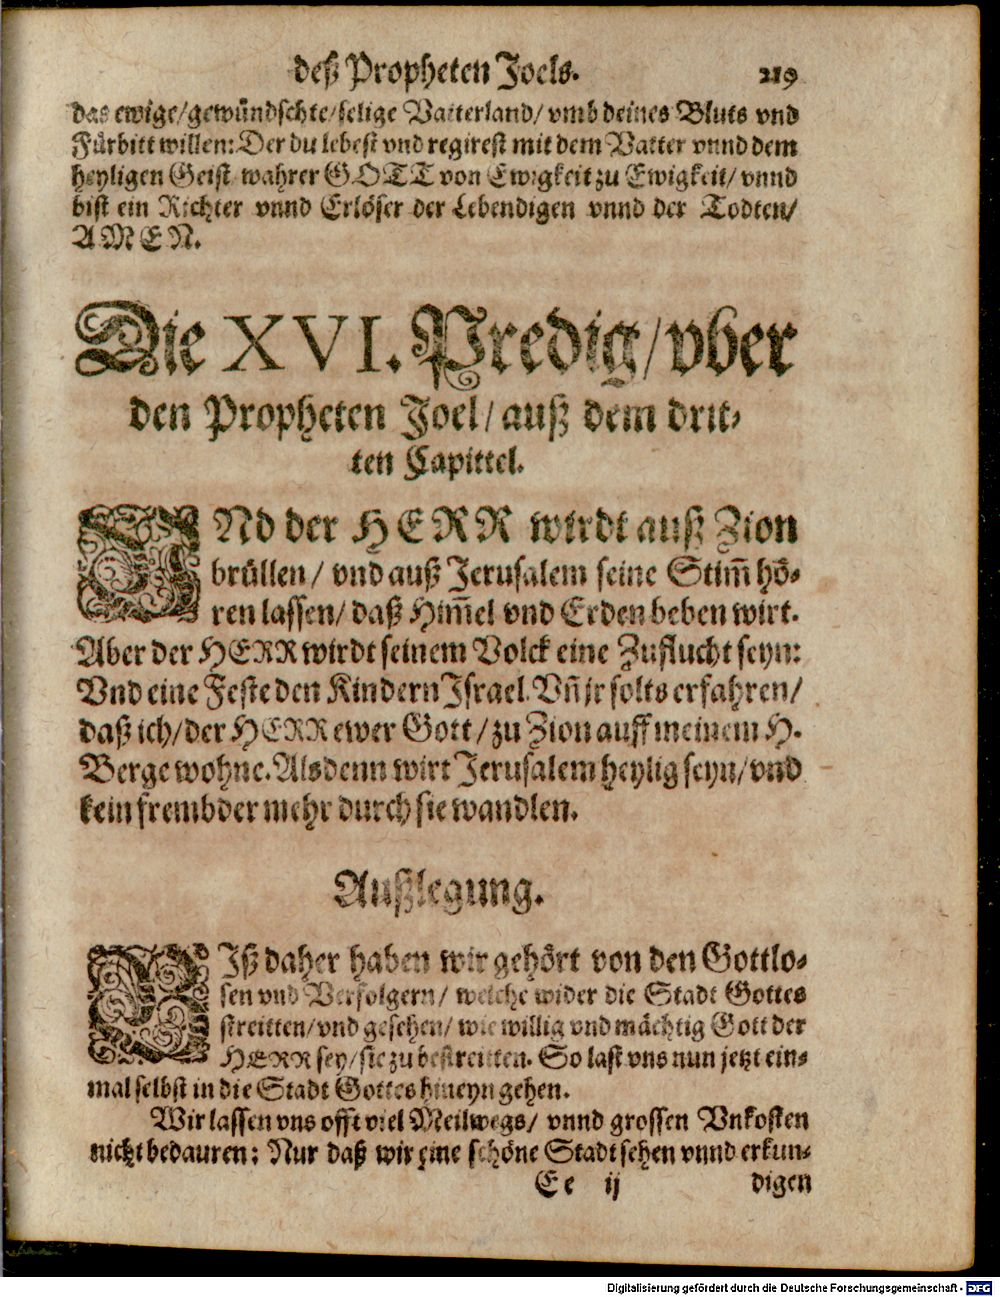 deß Propheten Joels. 219
das ewige/gewündschte/selige Vatterland/ vmb deines Bluts vnd
Fürbitt willen: Der du lebest vnd regirest mit dem Vatter vnnd dem
heyligen Geist wahrer GOTT von Ewigkeit zu Ewigkeit/ vnnd
bist ein Richter vnnd Erlöser der Lebendigen vnnd der Todten/
AMEN.
Die XVI. Predig/ vber
den Propheten Joel/ auß dem drit-
ten Capittel.
VNd der HERR wirdt auß Zion
brüllen/ vnd auß Jerusalem seine Stim̃ hö-
ren lassen/ daß Him̃el vnd Erden beben wirt.
Aber der HERR wirdt seinem Volck eine Zuflucht seyn:
Vnd eine Feste den Kindern Israel. Vñ jr solts erfahren/
daß ich/ der HERR ewer Gott/ zu Zion auff meinem H.
Berge wohne. Alsdenn wirt Jerusalem heylig seyn/ vnd
kein frembder mehr durch sie wandlen.
Außlegung.
BIß daher haben wir gehört von den Gottlo-
sen vnd Verfolgern/ welche wider die Stadt Gottes
streitten/ vnd gesehen/ wie willig vnd mächtig Gott der
HERR sey/ sie zu bestreitten. So last vns nun jetzt ein-
mal selbst in die Stadt Gottes hineyn gehen.
Wir lassen vns offt viel Meilwegs/ vnnd grossen Vnkosten
nicht bedauren: Nur daß wir eine schöne Stadt sehen vnnd erkun-
Ee ij digen
Digitalisierung gefördert durch die Deutsche Forschungsgemeinschaft - DFG